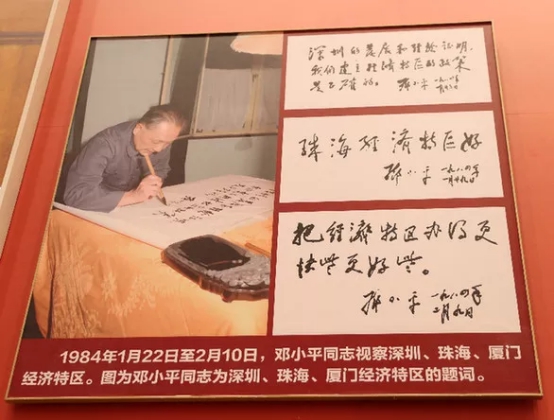 深圳的发展和经验证明，
我们建立经济特区的政策
是正确的。
邓小平
一九八四年
一月廿六日
珠海经济特区好
邓小平
一九八四年
一月廿九日
把经济特区办得更
快些更好些。
邓小平
一九八四年
二月九日
1984年1月22日至2月10日，邓小平同志视察深圳、珠海、厦门
经济特区。图为邓小平同志为深圳、珠海、厦门经济特区的题词。